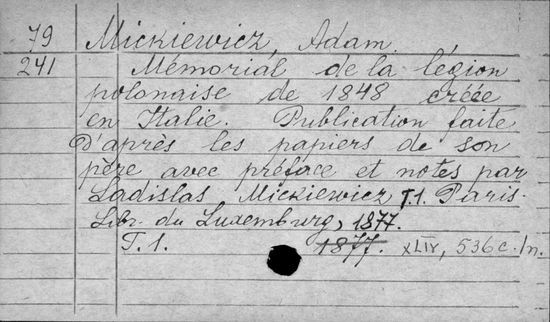 79 Mickiewicz, Adam.
241 Mémorial de la légion
polonaise de 1848 créée
en Italie. Publication faite
d'après les papiers de son
père avec préface et notes par
Ladislas Mickiewicz T.1. Paris.
Libr. du Luxemburg, 1877.
T. 1. 1877. XLIV, 536 c. In.